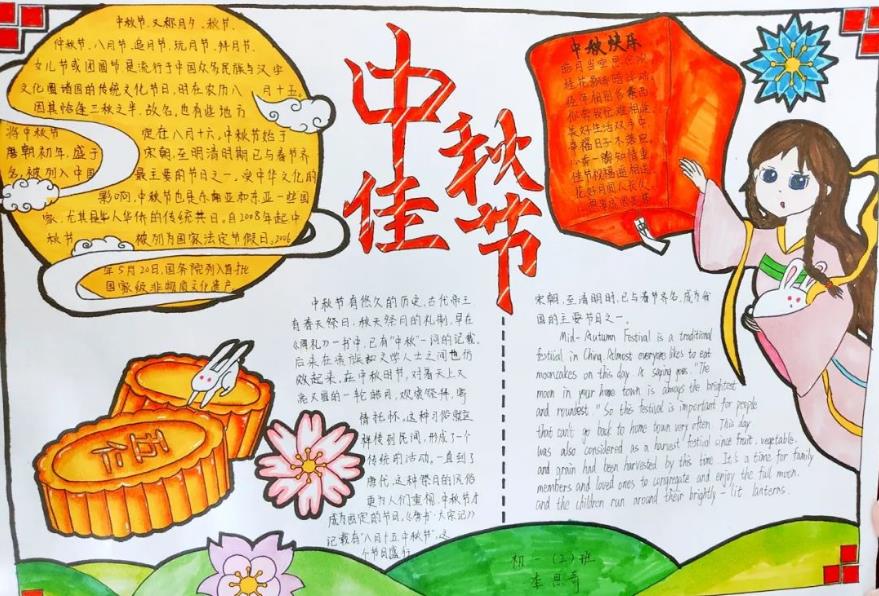 中秋佳节
中秋节,又称月夕、秋节、
仲秋节、八月节、追月节、玩月节、拜月节、
女儿节或团圆节,是流行于中国众多民族与汉字
文化圈诸国的传统文化节日,时在农历八月十五,
因其恰值三秋之半,故名,也有些地方
将中秋节定在八月十六。中秋节始于
唐朝初年,盛于宋朝,至明清时期已与春节齐
名,被列入中国最主要的节日之一。受中华文化的
影响,中秋节也是东南亚和东亚一些国
家,尤其是华人华侨的传统节日,自2008年起中
秋节被列为国家法定节假日,2006
年5月20日,国务院列入首批
国家级非物质文化遗产
中秋快乐
五仁
中秋节有悠久的历史,古代帝王
有春天祭日,秋天祭月的礼制,早在
《周礼》一书中,已有“中秋”一词的记载。
后来在贵族和文学人士之间也仿
效起来,在中秋时节,对着天上又
亮又圆的一轮皓月,观赏祭拜,寄
情托怀。这种习俗就这
样传到民间,形成了一个
传统的活动。一直到了
唐代,这种祭月的风俗
更为人们重视,中秋节才
成为固定的节日,《唐书·太宗记》
记载有“八月十五中秋节”,这
个节日盛行
宋朝,至清明时,已与春节齐名,成为我
国的主要节日之一。
Mid-Autumn Festival is a traditional
festival in China. Almost everyone likes to eat
mooncakes on this day. Is saying goes, "The
moon in your home town is always the brightest
and roundest." So this festival is important for people
that can't go back to home town very often. This day
was also considered as a harvest festival since fruit, vegetable,
and grain had been harvested by this time. It's a time for family
members and loved ones to congregate and enjoy the full moon.
and the children run around their brightly-lit lanterns.
初一(2)班
李思奇